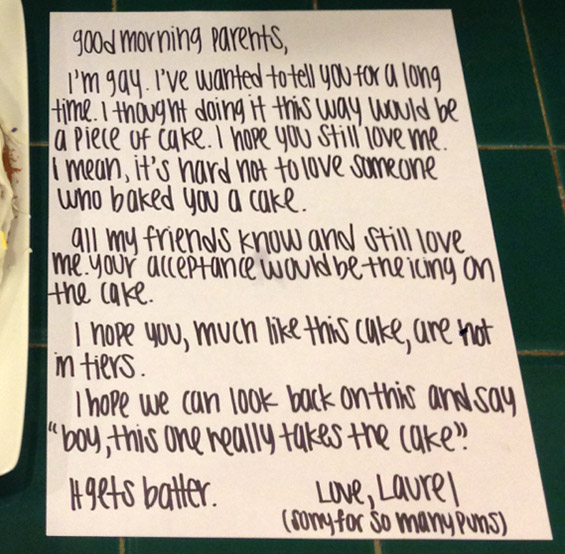 good morning parents,
I'm gay. I've wanted to tell you for a long
time. I thought doing it this way would be
a piece of cake. I hope you still love me.
I mean, it's hard not to love someone
who baked you a cake.
all my friends know and still love
me. your acceptance would be the icing on
the cake.
I hope you, much like this cake, are not
in tiers.
I hope we can look back on this and say
"boy, this one really takes the cake".
It gets batter.
Love, Laurel
(sorry for so many puns)